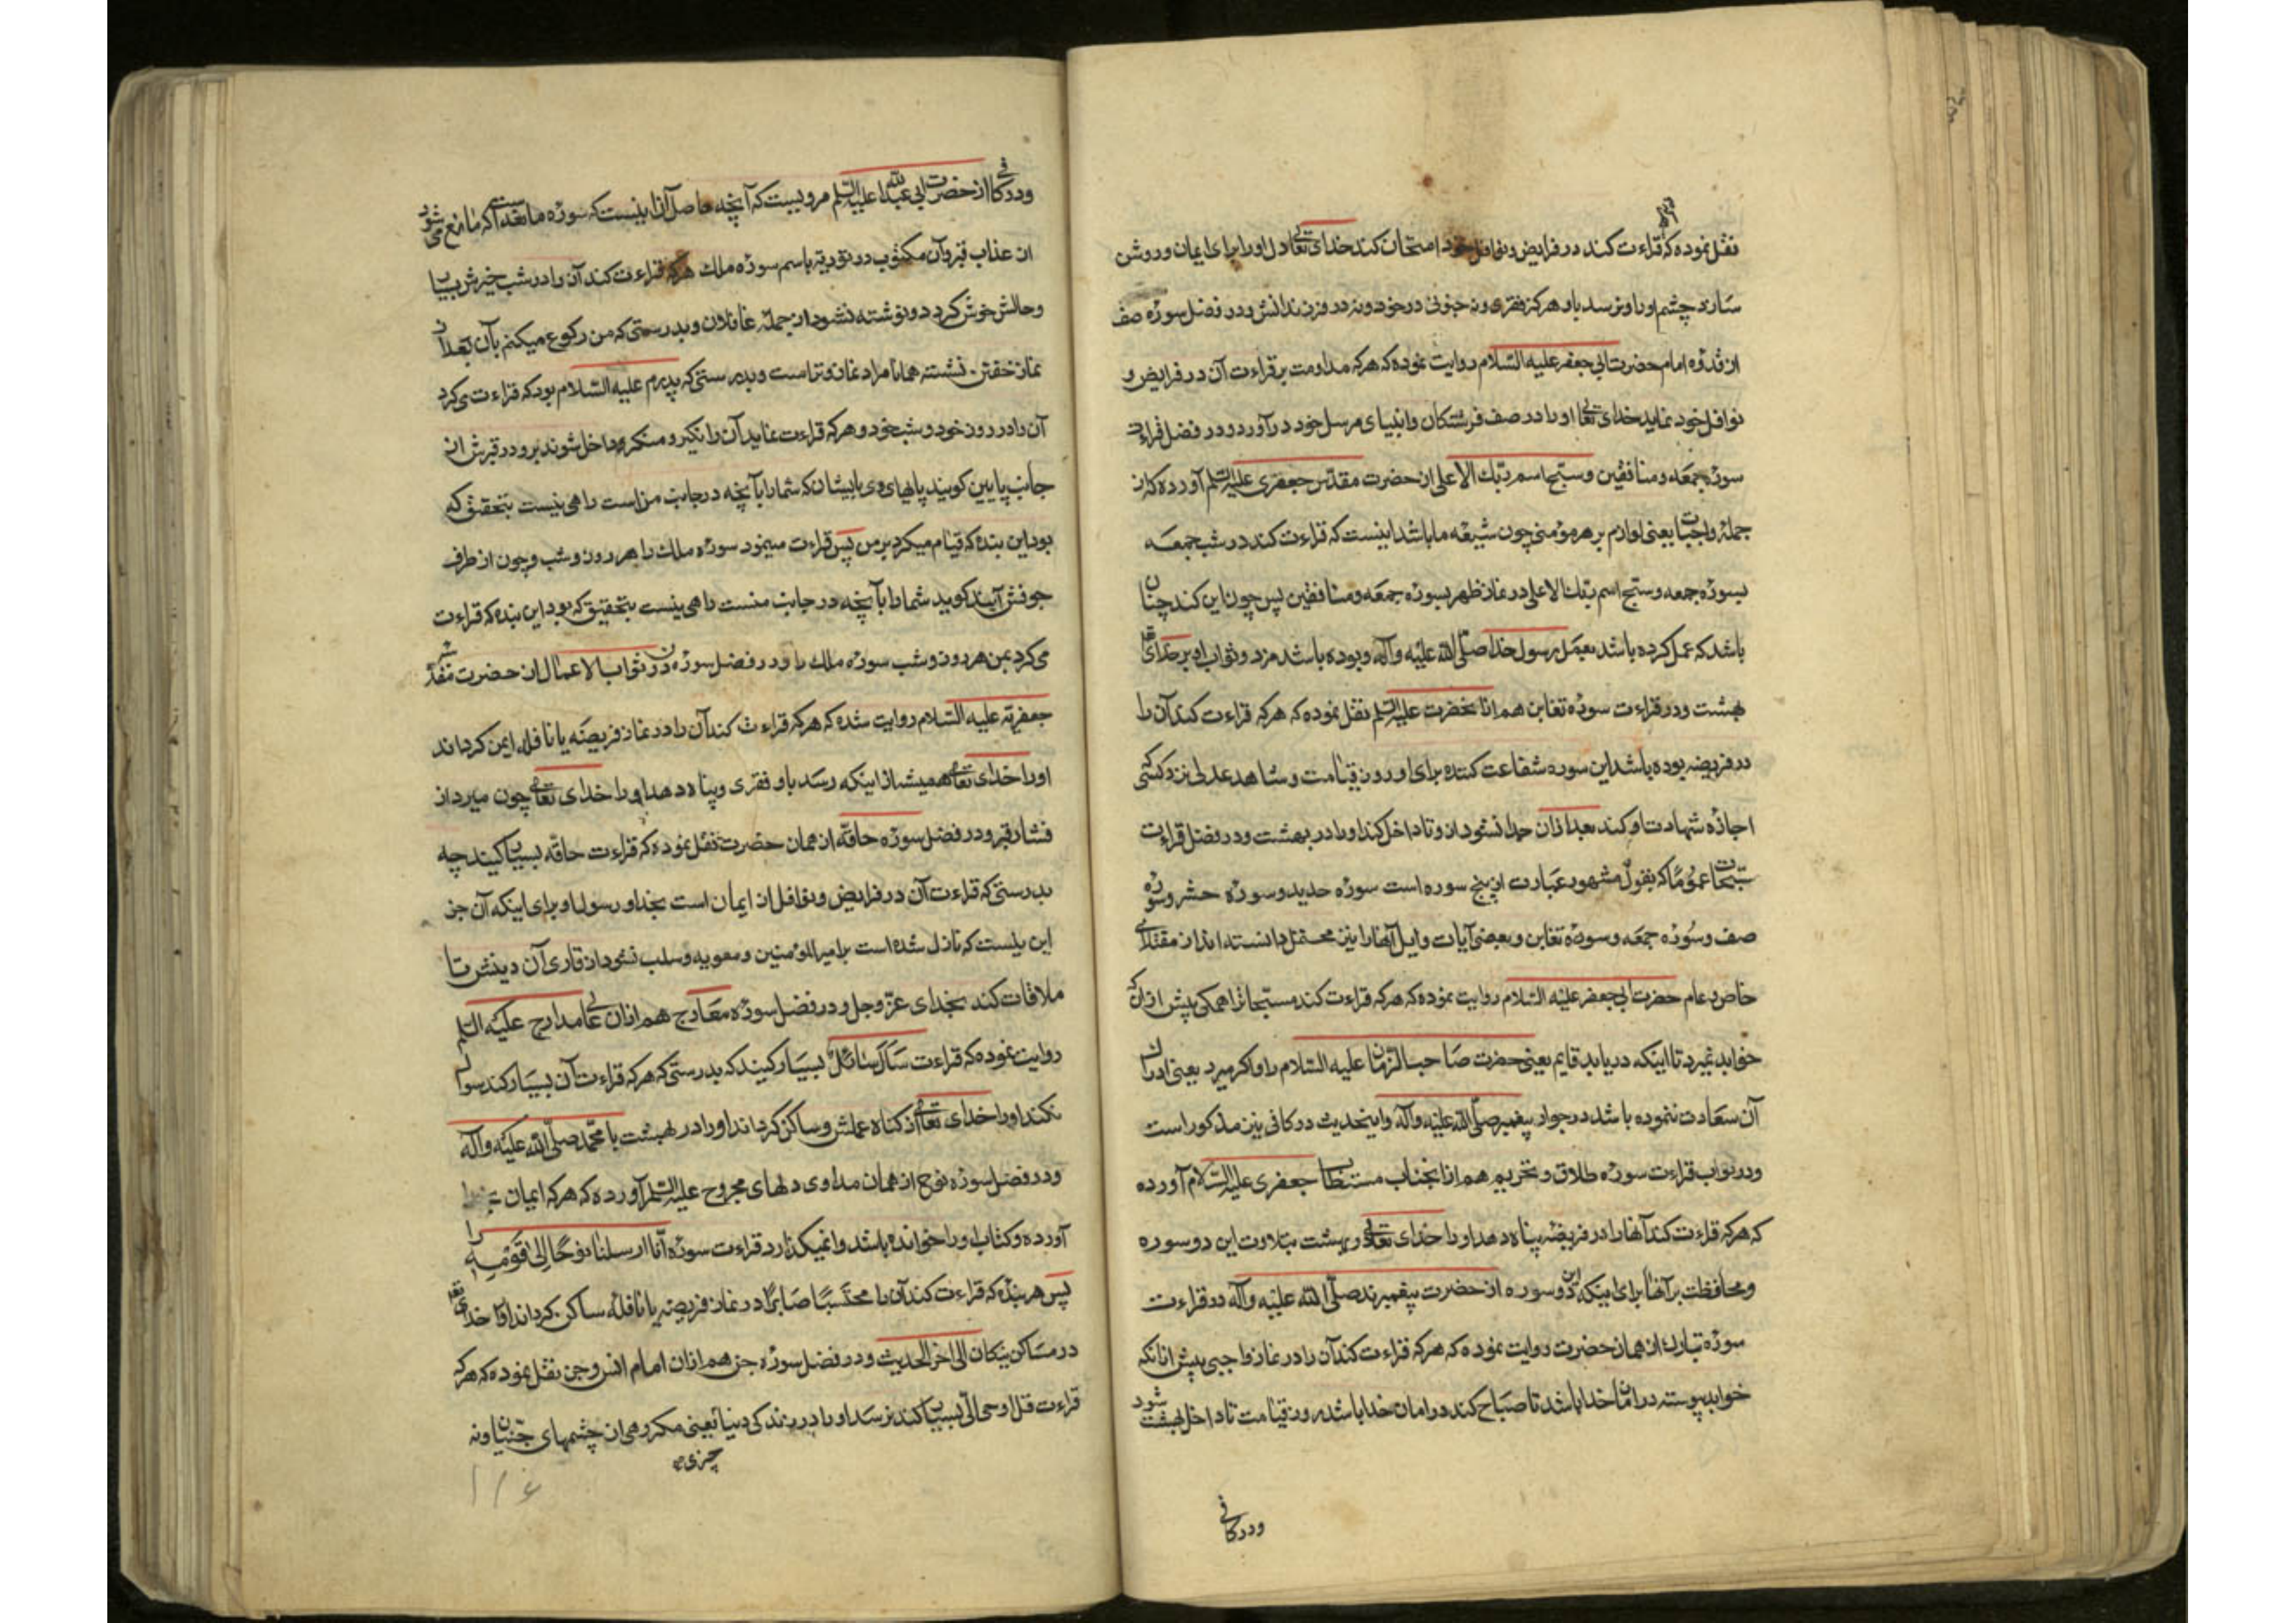 نقل نموده که هرکه قراءت کند در فرایض و نوافل خود امتحان کند خدای تعالی دل او را برای ایمان و روشن
سازد چشم او را و نرسد باو هرگز فقری و نه جنونی در خود و نه در فرزندانش و در فضل سوره صف
از قدوه امام حضرت ابی جعفر علیه السلام روایت نموده که هرکه مداومت بر قراءت آن در فرایض و
نوافل خود نماید خدای تعالی او را در صف فرشتکان و انبیای مرسل خود در آورد و در فضل قراءت
سوره جمعه و منافقین و سبح اسم ربک الاعلی از حضرت مقدس جعفری علیه السلم آورده که از
جمله واجبات یعنی لوازم بر هر مؤمنی چون شیعه ما باشد اینست که قراءت کند در شب جمعه
بسوره جمعه و سبح اسم ربک الاعلی در نماز ظهر بسوره جمعه و منافقین پس چون این کند چنان
باشد که عمل کرده باشد بعمل رسول خدا صلی الله علیه وآله و بوده باشد مزد و ثواب او بر خدای تعالی
بهشت و در قراءت سوره تغابن هم از آنحضرت علیه السلم نقل نموده که هرکه قراءت کند آن را
در فریضه بوده باشد این سوره شفاعت کننده برای او روز قیامت و شاهد عدلی نزد کسی که
اجازه شهادت او کند بعد از آن جدا نشود از و تا داخل کند او را در بهشت و در فضل قراءت
مسبحات عموما که بقول مشهور عبارت از پنج سوره است سوره حدید و سوره حشر و سوره
صف و سوره جمعه و سوره تغابن و بعضی آیات و ایل آنها را نیز محتمل دانسته اند از مقتدای
خاص و عام حضرت ابی جعفر علیه السلام روایت نموده که هرکه قراءت کند مسبحات را همکی پیش از آن که
خوابد نمیرد تا اینکه دریابد قایم یعنی حضرت صاحب الزمان علیه السلام را و اکر میرد یعنی ادراک
آن سعادت ننموده باشد در جوار پیغمبر صلی الله علیه وآله و اینحدیث در کافی نیز مذکور است
و در ثواب قراءت سوره طلاق و تحریم هم از آنجناب مستطاب جعفری علیه السلام آورده
که هرکه قراءت کند آنها را در فریضه پناه دهد او را خدای تعالی و بهشت بتلاوت این دو سوره
و محافظت بر آنها برای اینکه این دو سوره از حضرت پیغمبرند صلی الله علیه وآله و در قراءت
سوره تبارک از همان حضرت روایت نموده که هرکه قراءت کند آن را در نماز واجبی پیش از آنکه
خوابد پیوسته در امان خدا باشد تا صباح کند و در امان خدا باشد روز قیامت تا داخل بهشت شود
و در کافی
و در کافی از حضرت ابی عبدالله علیه السلم مرویست که آنچه حاصل آن اینست که سوره مانعه است که مانع می شود
از عذاب قبر و آن مکتوب در توریة باسم سوره ملک هرکه قراءت کند آن را در شب خیرش بسیار
و حالش خوش کردد و نوشته نشود از جمله غافلان و بدرستی که من رکوع میکنم بآن بعد از
نماز خفتن نشسته همانا مراد نماز وتر است و بدرستی که پدرم علیه السلام بود که قراءت می کرد
آن را در روز خود و شب خود و هرکه قراءت نماید آن را نکیر و منکر داخل شوند برو در قبرش از
جانب پایین کویند پاهای وی بایشان که شما را بآنچه در جانب من است راهی نیست بتحقیق که
بود این بنده که قیام میکرد بر من پس قراءت مینمود سوره ملک را هر روز و شب و چون از طرف
جوفش آیند کوید شما را بآنچه در جانب منست راهی نیست بتحقیق که بود این بنده که قراءت
می کرد بمن هر روز و شب سوره ملک را و در فضل سوره ن در ثواب الاعمال از حضرت مقدس
جعفریه علیه السلام روایت شده که هرکه قراءت کند آن را در نماز فریضه یا نافله ایمن کرداند
او را خدای تعالی همیشه از اینکه رسد باو فقری و پناه دهد او را خدای تعالی چون میرد از
فشار قبر و در فضل سوره حاقه از همان حضرت نقل نموده که قراءت حاقه بسیار کنید چه
بدرستی که قراءت آن در فرایض و نوافل از ایمان است بخدا و رسول او برای اینکه آن جز
این نیست که نازل شده است در امیر المؤمنین و معویه و سلب نشود از قاری آن دینش تا
ملاقات کند بخدای عز وجل و در فضل سوره معارج هم از آن عالی مدارج علیه السلم
روایت نموده که قراءت سأل سائل بسیار کنید که بدرستی که هرکه قراءت آن بسیار کند سوال
نکند او را خدای تعالی از کناه عملش و ساکن کرداند او را در بهشت با محمد صلی الله علیه وآله
و در فضل سوره نوح از همان مداوی دلهای مجروح علیه السلم آورده که هرکه ایمان بخدا
آورده و کتاب او را خوانده باشد وا نمیکذارد قراءت سوره انا ارسلنا نوحا الی قومه را
پس هر بنده که قراءت کند آن را محتسبا صابرا در نماز فریضه یا نافله ساکن کرداند او را خدای تعالی
در مساکن نیکان الی اخر الحدیث و در فضل سوره جن هم از آن امام انس و جن نقل نموده که هرکه
قراءت قل اوحی الی بسیار کند نرسد او را در زندکی دنیا یعنی مکروهی از چشمهای جنیان و نه
چیزی